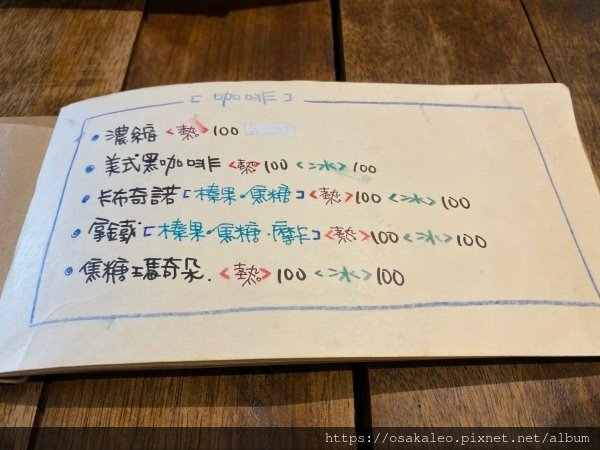 [咖啡]
• 濃縮 <熱> 100
• 美式黑咖啡 <熱> 100 <冰> 100
• 卡布奇諾 [榛果•焦糖] <熱> 100 <冰> 100
• 拿鐵 [榛果•焦糖•摩卡] <熱> 100 <冰> 100
• 焦糖瑪奇朵. <熱> 100 <冰> 100
https://osakaleo.pixnet.net/album